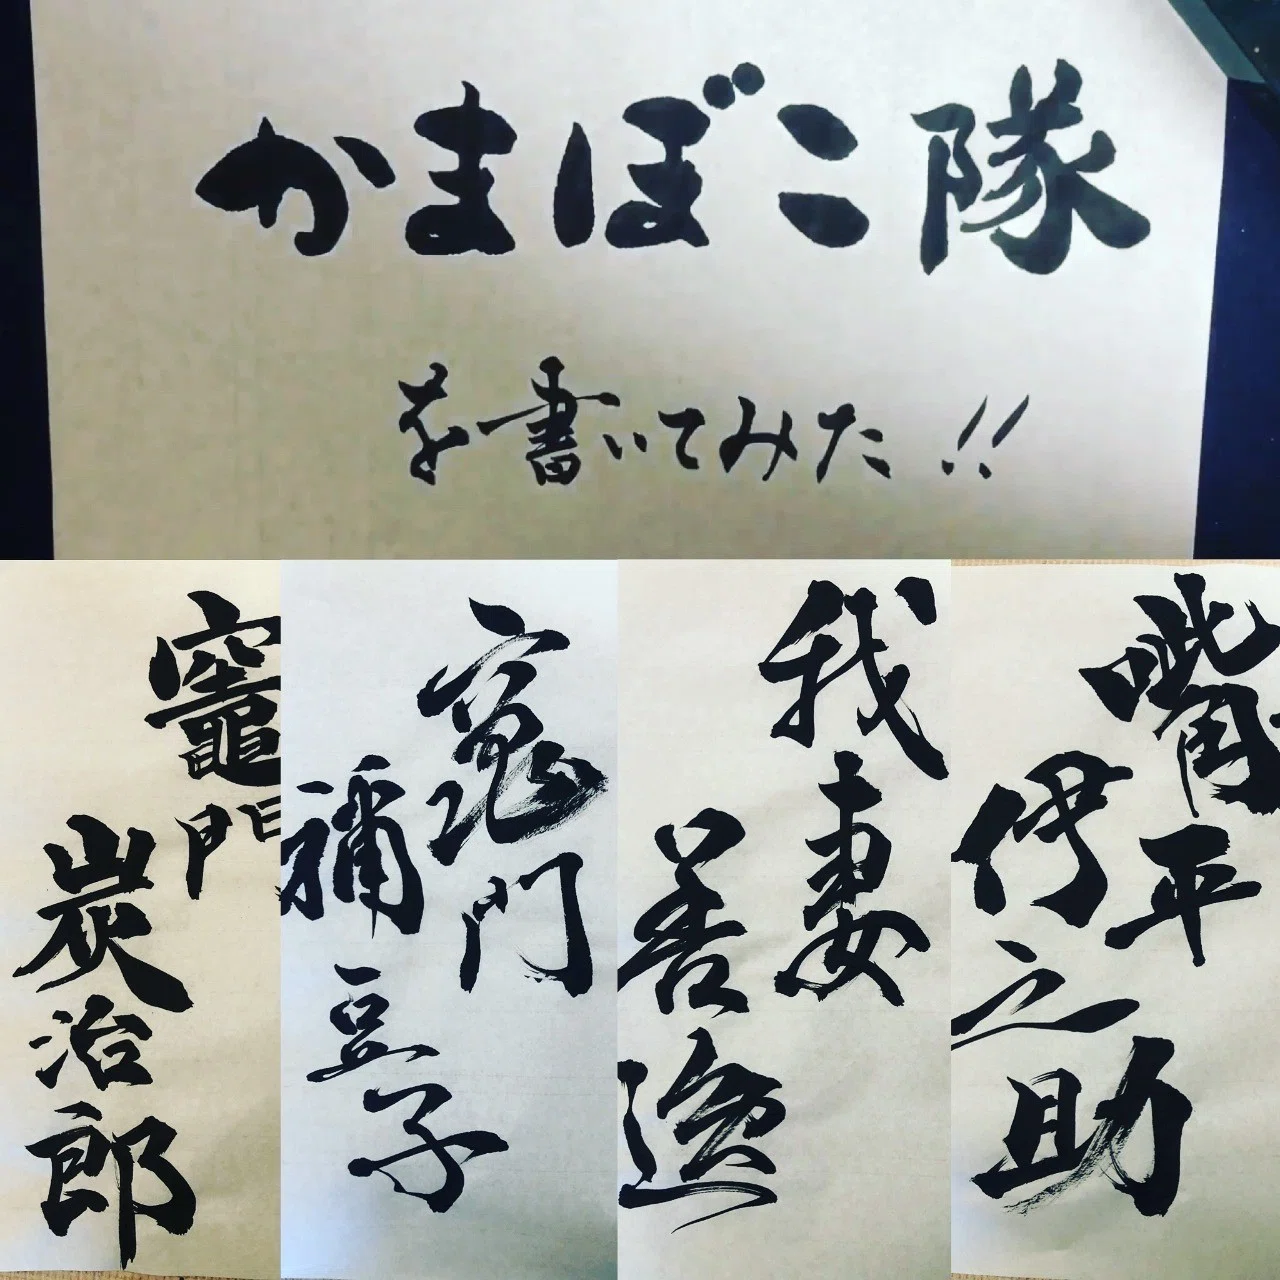 かまぼこ隊
を書いてみた!!
竈門
炭治郎
竈門
禰豆子
我妻
善逸
嘴平
伊之助